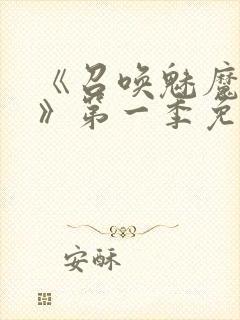 《召唤魅魔
》第一季免
安酥